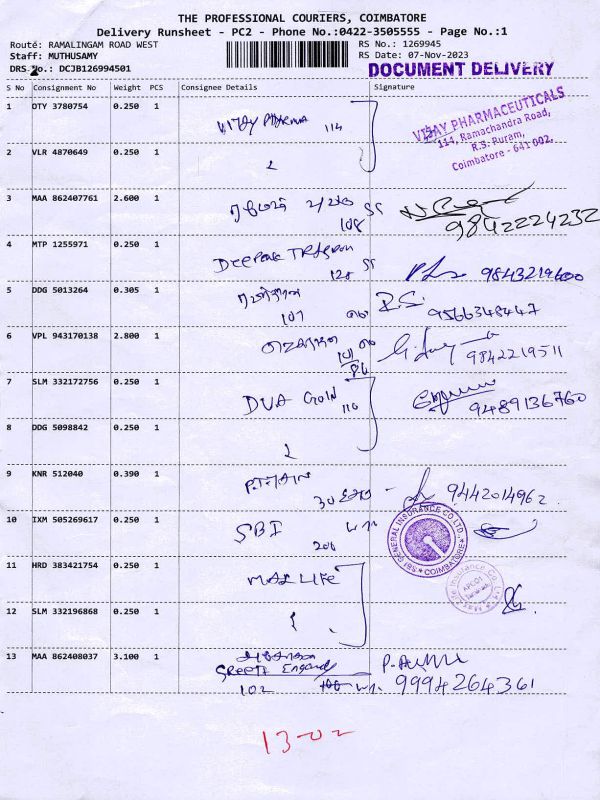 THE PROFESSIONAL COURIERS, COIMBATORE
Delivery Runsheet - PC2 - Phone No.:0422-3505555 - Page No.:1
Route: RAMALINGAM ROAD WEST
RS No.: 1269945
Staff: MUTHUSAMY
RS Date: 07-Nov-2023
DRS No.: DCJB126994501
DOCUMENT DELIVERY
S No Consignment No Weight PCS Consignee Details Signature
1 OTY 3780754 0.250 1 VIJAY PHARMA 114
VIJAY PHARMACEUTICALS
114, Ramachandra Road,
R.S. Puram,
Coimbatore - 641 002.
2 VLR 4870649 0.250 1 2
3 MAA 862407761 2.600 1 108 9842224232
4 MTP 1255971 0.250 1 DEEPAK 128 9843219600
5 DDG 5013264 0.305 1 107 R.S. 9566348447
6 VPL 943170138 2.800 1 101 9842219511
7 SLM 332172756 0.250 1 DUA GOLD 116 9489136760
8 DDG 5098842 0.250 1 2
9 KNR 512040 0.390 1 30 9442014962
10 IXM 505269617 0.250 1 SBI 206
SBI GENERAL INSURANCE CO.LTD.,
COIMBATORE
11 HRD 383421754 0.250 1 MAX LIFE
Max Life Insurance Co. Ltd.
12 SLM 332196868 0.250 1
13 MAA 862408037 3.100 1
102 9994264361
13-02